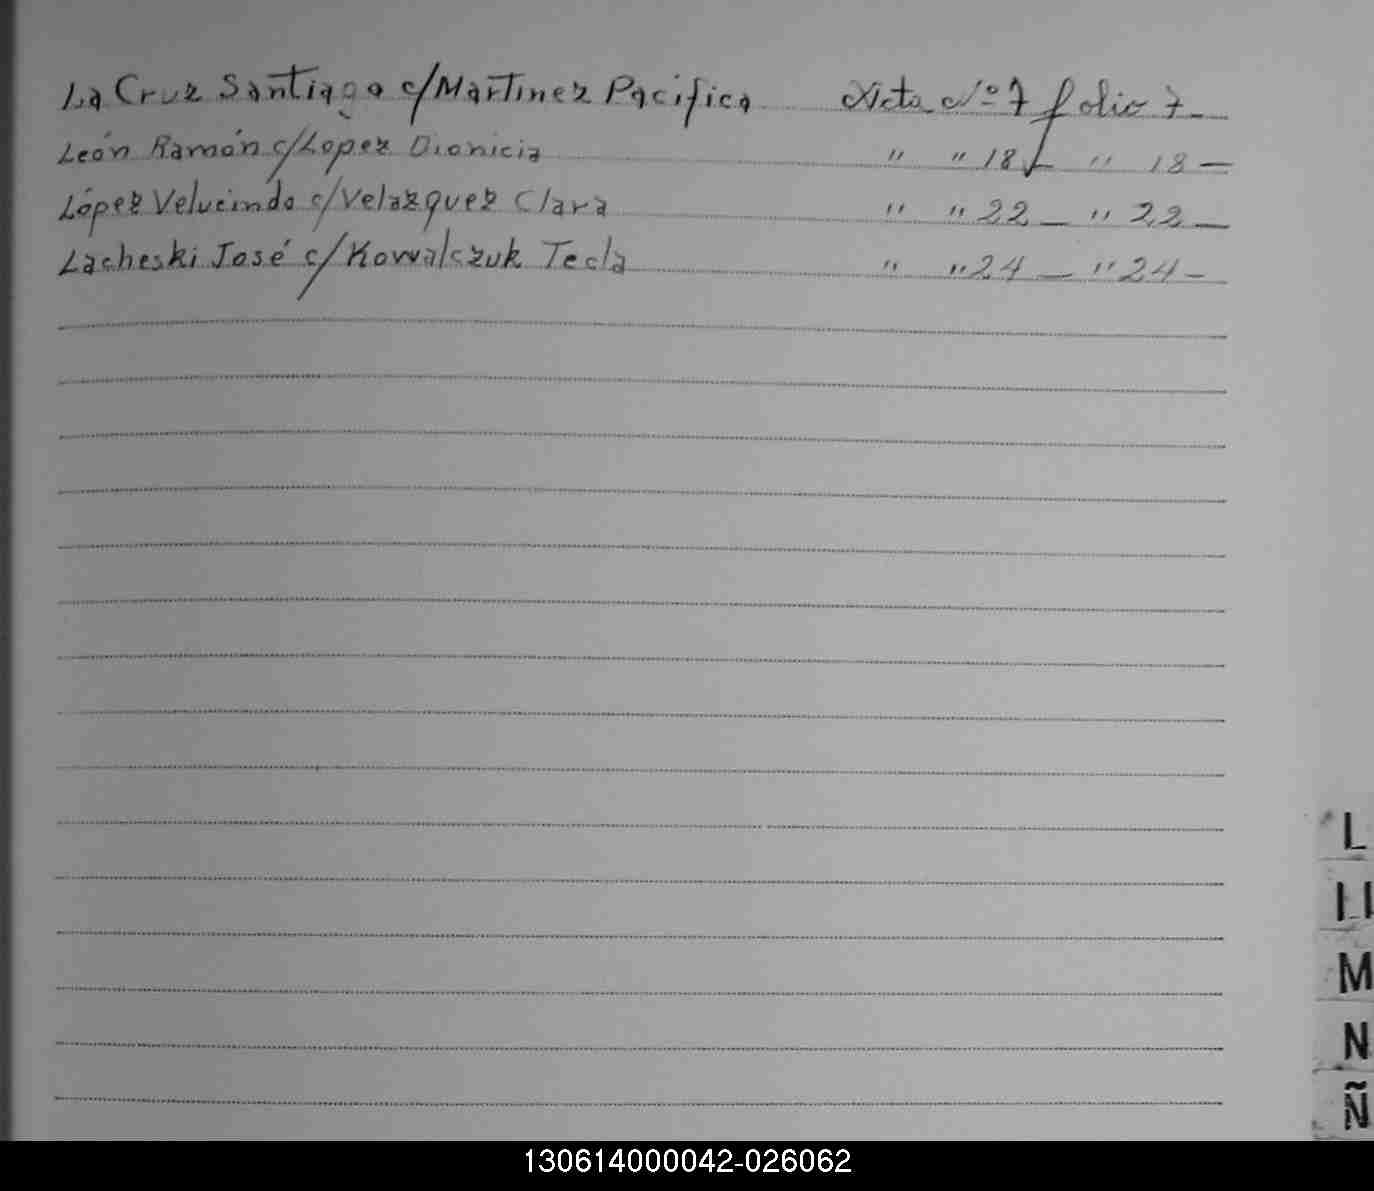 La Cruz Santiago c/Martinez Pacifica Acta Nº 7 folio 7
León Ramón c/Lopez Dionicia " " 18 " 18
López Velucindo c/Velazquez Clara " " 22 " 22
Lacheski José c/Kowalczuk Tecla " " 24 " 24
L
Ll
M
N
Ñ
130614000042-026062